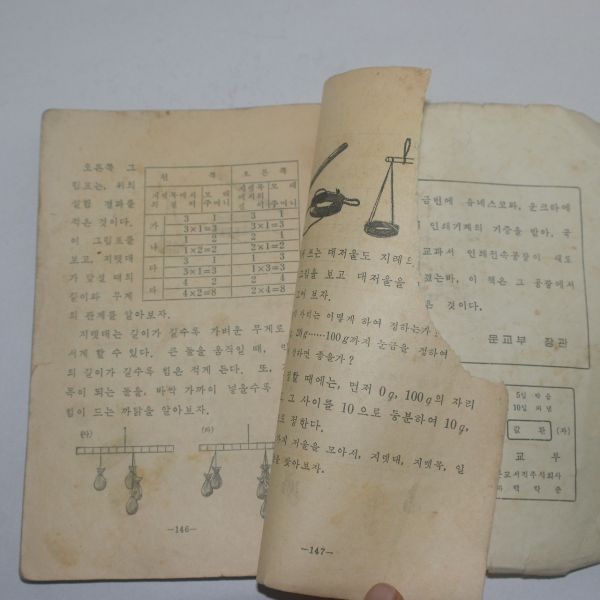 오른쪽 그
림표는, 위의
실험 결과를
적은 것이다.
이 그림표를
보고, 지렛대
가 맞설 때의
길이와 무게
의 관계를 알아보자.
왼 쪽 오 른 쪽
가 3 1 3 1
3×1=3 3×1=3
나 1 2 2 1
1×2=2 2×1=2
다 3 1 1 3
3×1=3 1×3=3
라 4 2 2 4
4×2=8 2×4=8
지렛대는 길이가 길수록 가벼운 무게로
세게 할 수 있다. 큰 돌을 움직일 때,
의 길이가 길수록 힘은 적게 든다. 또,
목이 되는 돌을, 바싹 가까이 넣을수록
힘이 드는 까닭을 알아보자.
(다) (라)
—146—
쓰는 대저울도 지레
그림을 보고 대저울을
보자.
자리는 어떻게 하여 정하는가
20g……100g까지 눈금을 정하여
하면 좋을가?
할 때에는, 먼저 0g, 100g의 자리
그 사이를 10으로 등분하여 10g,
정한다.
저울을 모아서, 지렛대, 지렛목, 일
찾아보자.
—147—
금번에 유네스코와, 운크라에
인쇄기계의 기증을 받아, 국
교과서 인쇄전속공장이 새로
이 책은 그 공장에서
것이다.
문교부 장관
5일 박음
10일 펴냄
값 환
교 부